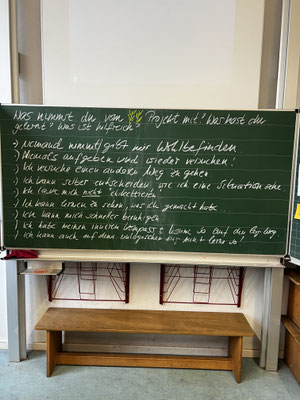 Was nimmst du vom Projekt mit? Was hast du
gelernt? Was ist hilfreich?
-) Niemand nimmt/gibt mir Wohlbefinden.
-) Niemals aufgeben und wieder versuchen!
-) Ich versuche einen anderen Weg zu gehen
-) Ich kann selber entscheiden, wie ich eine Situation sehe.
-) Ich lasse mich nicht
-) Ich kann lernen zu sehen, was ich gemacht habe.
-) Ich kann mich schneller beruhigen.
-) Ich habe meinen inneren Kompass & komme so auf den Weg
-) Ich kann auch auf dem Weg